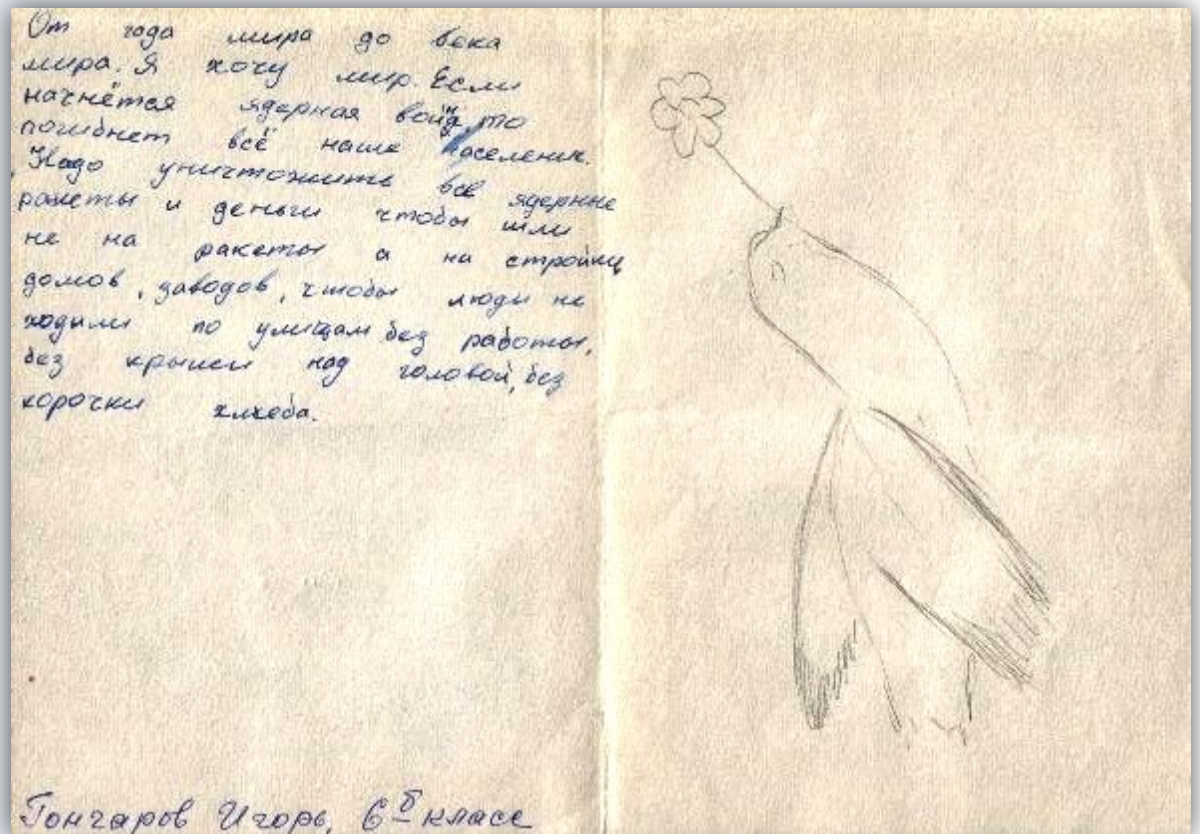 От года мира до века
мира. Я хочу мир. Если
начнётся ядерная война, то
погибнет всё наше население.
Надо уничтожить все ядерные
ракеты и деньги чтобы шли
не на ракеты а на стройку
домов, заводов, чтобы люди не
ходили по улицам без работы,
без крыши над головой, без
корочки хлеба.
Гончаров Игорь, 6 б класс